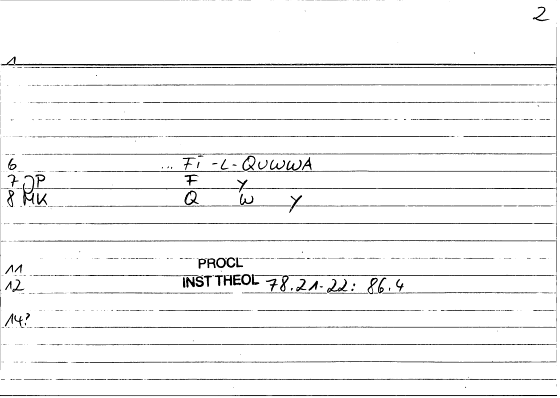 2
1
6 ... Fi -L- QUWWA
7 OP F y
8 MK Q W y
11 PROCL
12 INST THEOL 78.21-22: 86.4
14?